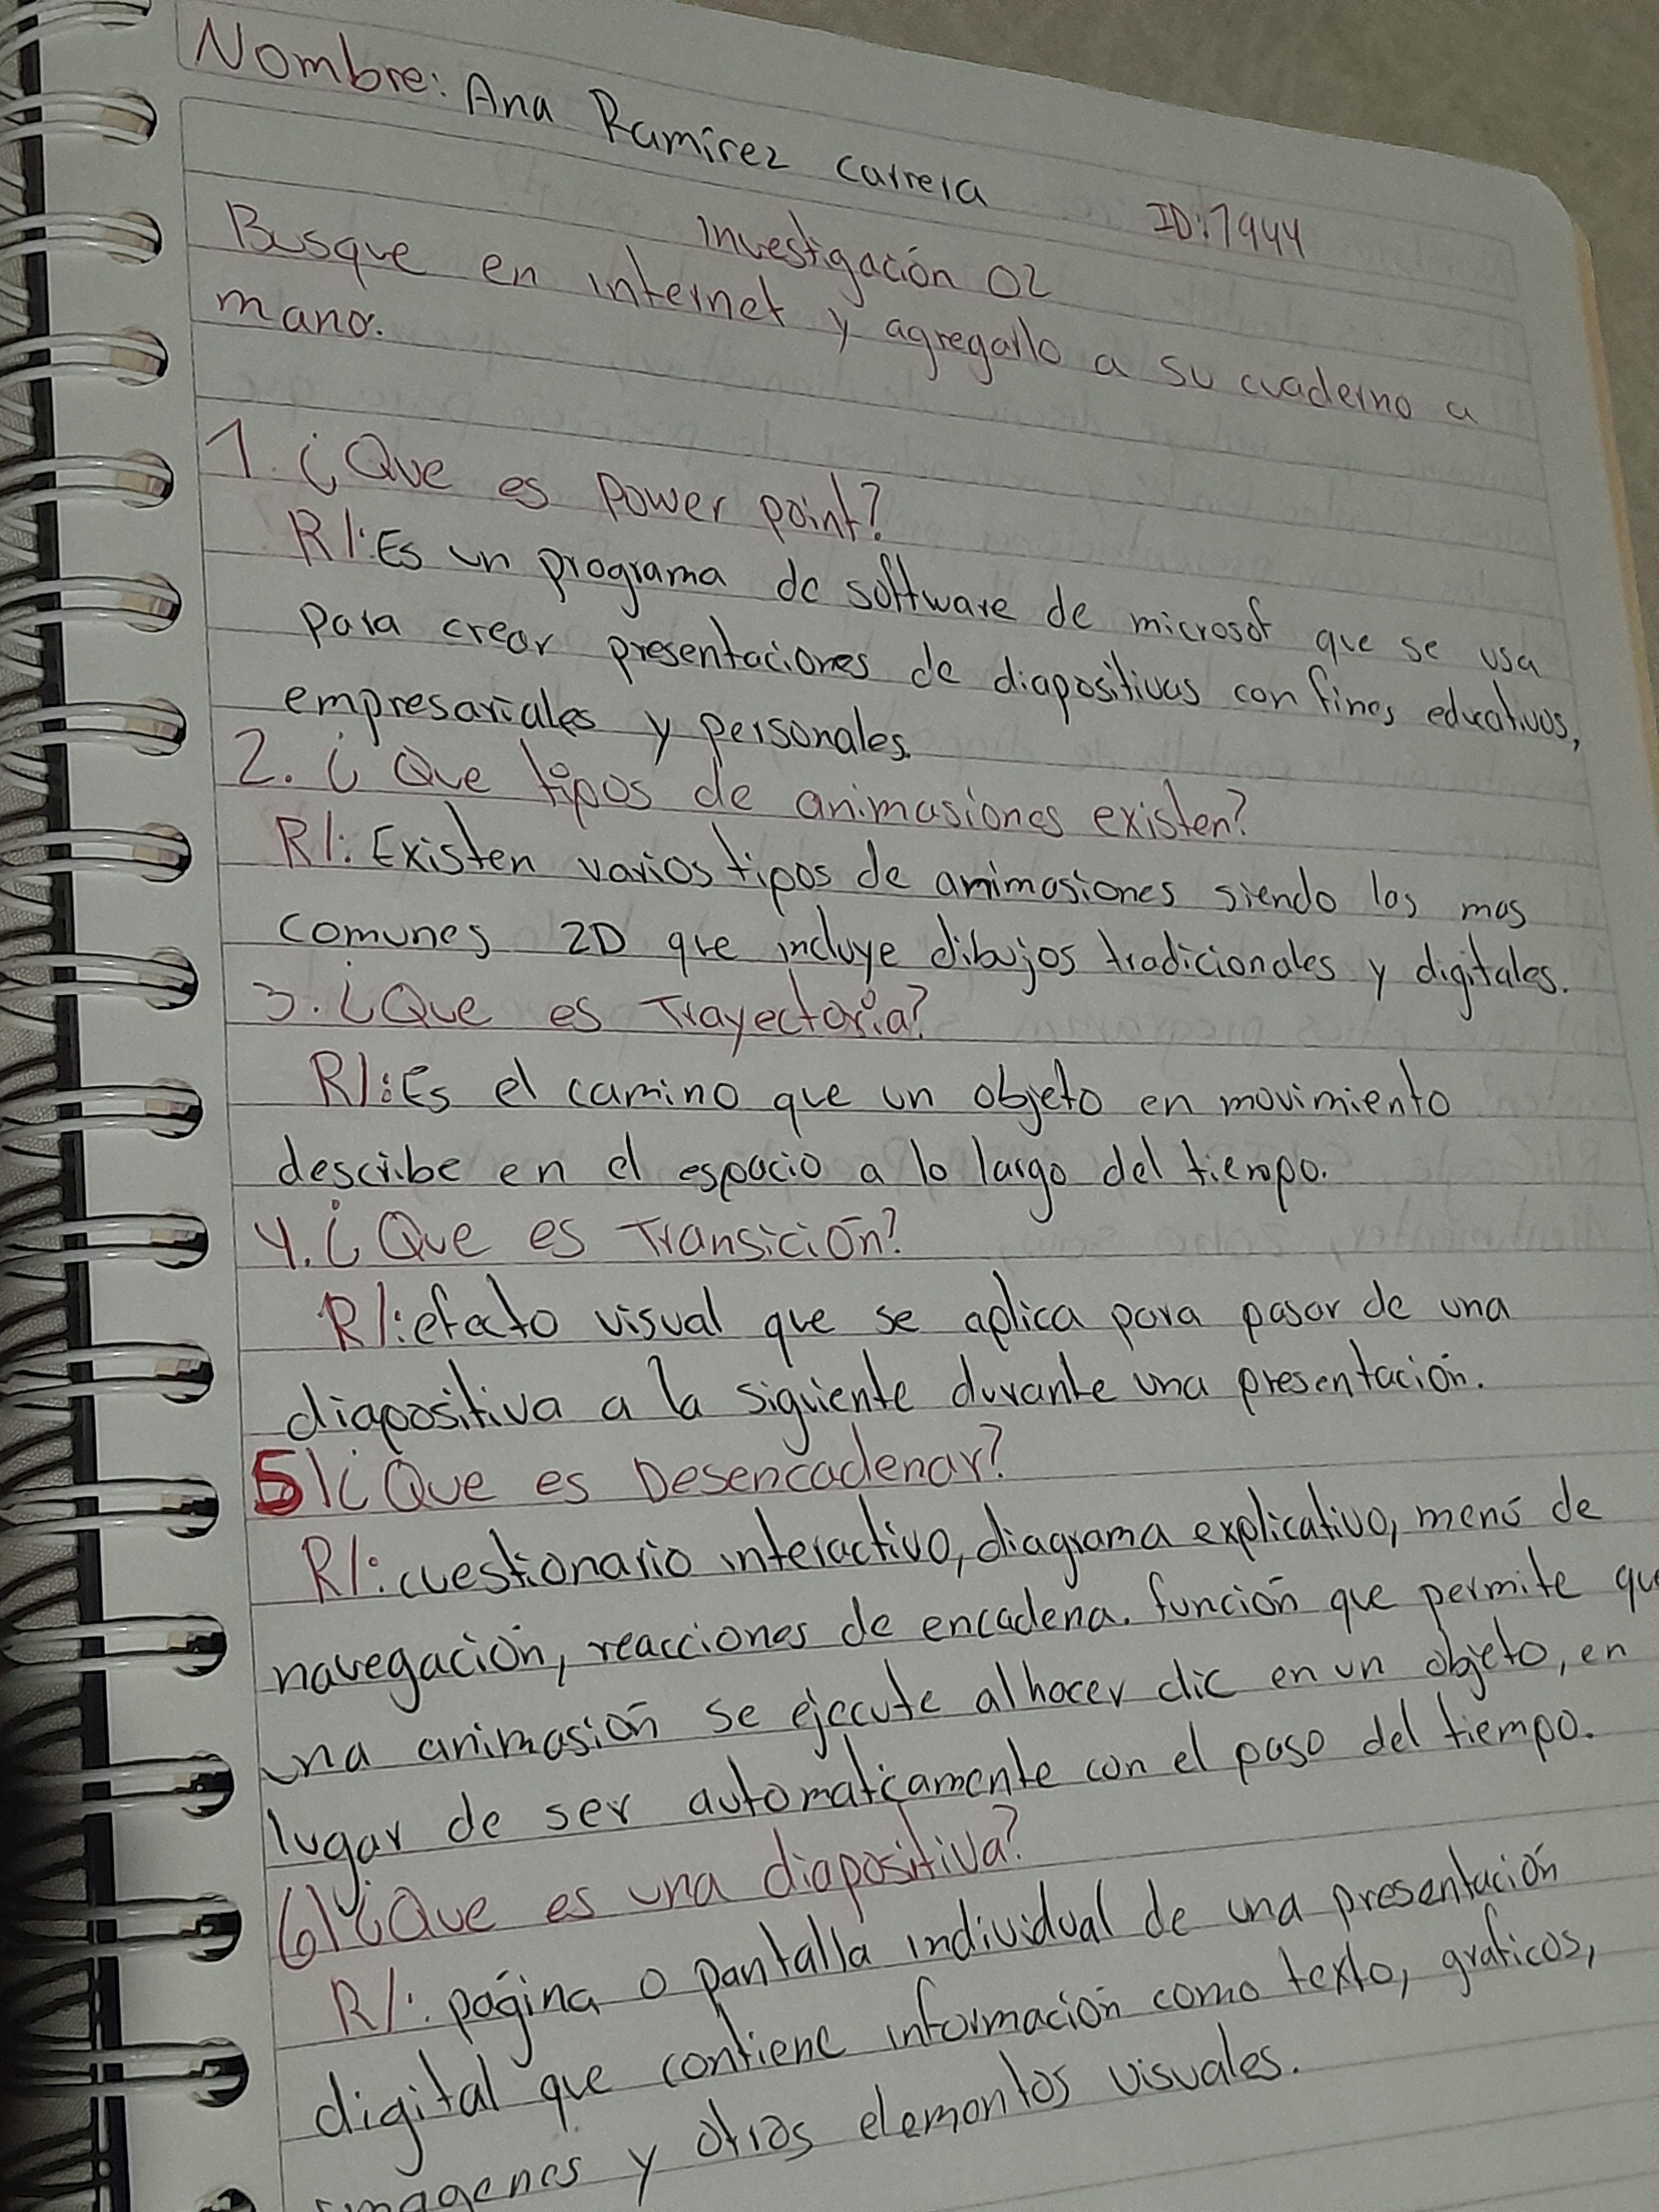 Nombre: Ana Ramirez Carrera
ID: 7944
Investigación 02
Busque en internet y agregarlo a su cuaderno a
mano.
1. ¿Que es Power point?
R/: Es un programa de software de microsof que se usa
para crear presentaciones de diapositivas con fines educativos,
empresariales y personales.
2. ¿Que tipos de animasiones existen?
R/: Existen varios tipos de animasiones siendo las mas
comunes 2D que incluye dibujos tradicionales y digitales.
3. ¿Que es Trayectoria?
R/: Es el camino que un objeto en movimiento
describe en el espacio a lo largo del tiempo.
4. ¿Que es Transición?
R/: efecto visual que se aplica para pasar de una
diapositiva a la siguiente durante una presentación.
5) ¿Que es Desencadenar?
R/: cuestionario interactivo, diagrama explicativo, menú de
navegación, reacciones de encadena. función que permite qu
una animasión se ejecute al hacer clic en un objeto, en
lugar de ser automaticamente con el paso del tiempo.
6) ¿Que es una diapositiva?
R/: página o pantalla individual de una presentación
digital que contiene información como texto, graficos,
imagenes y otros elementos visuales.